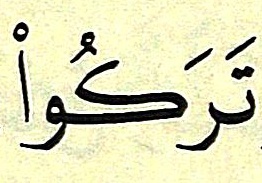 تَرَكُواْ